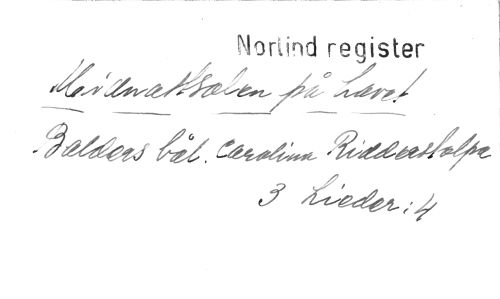 Norlind register
Midnattsolen på havet
Balders bål. Carolina Ridderstolpe
3 Lieder: 4